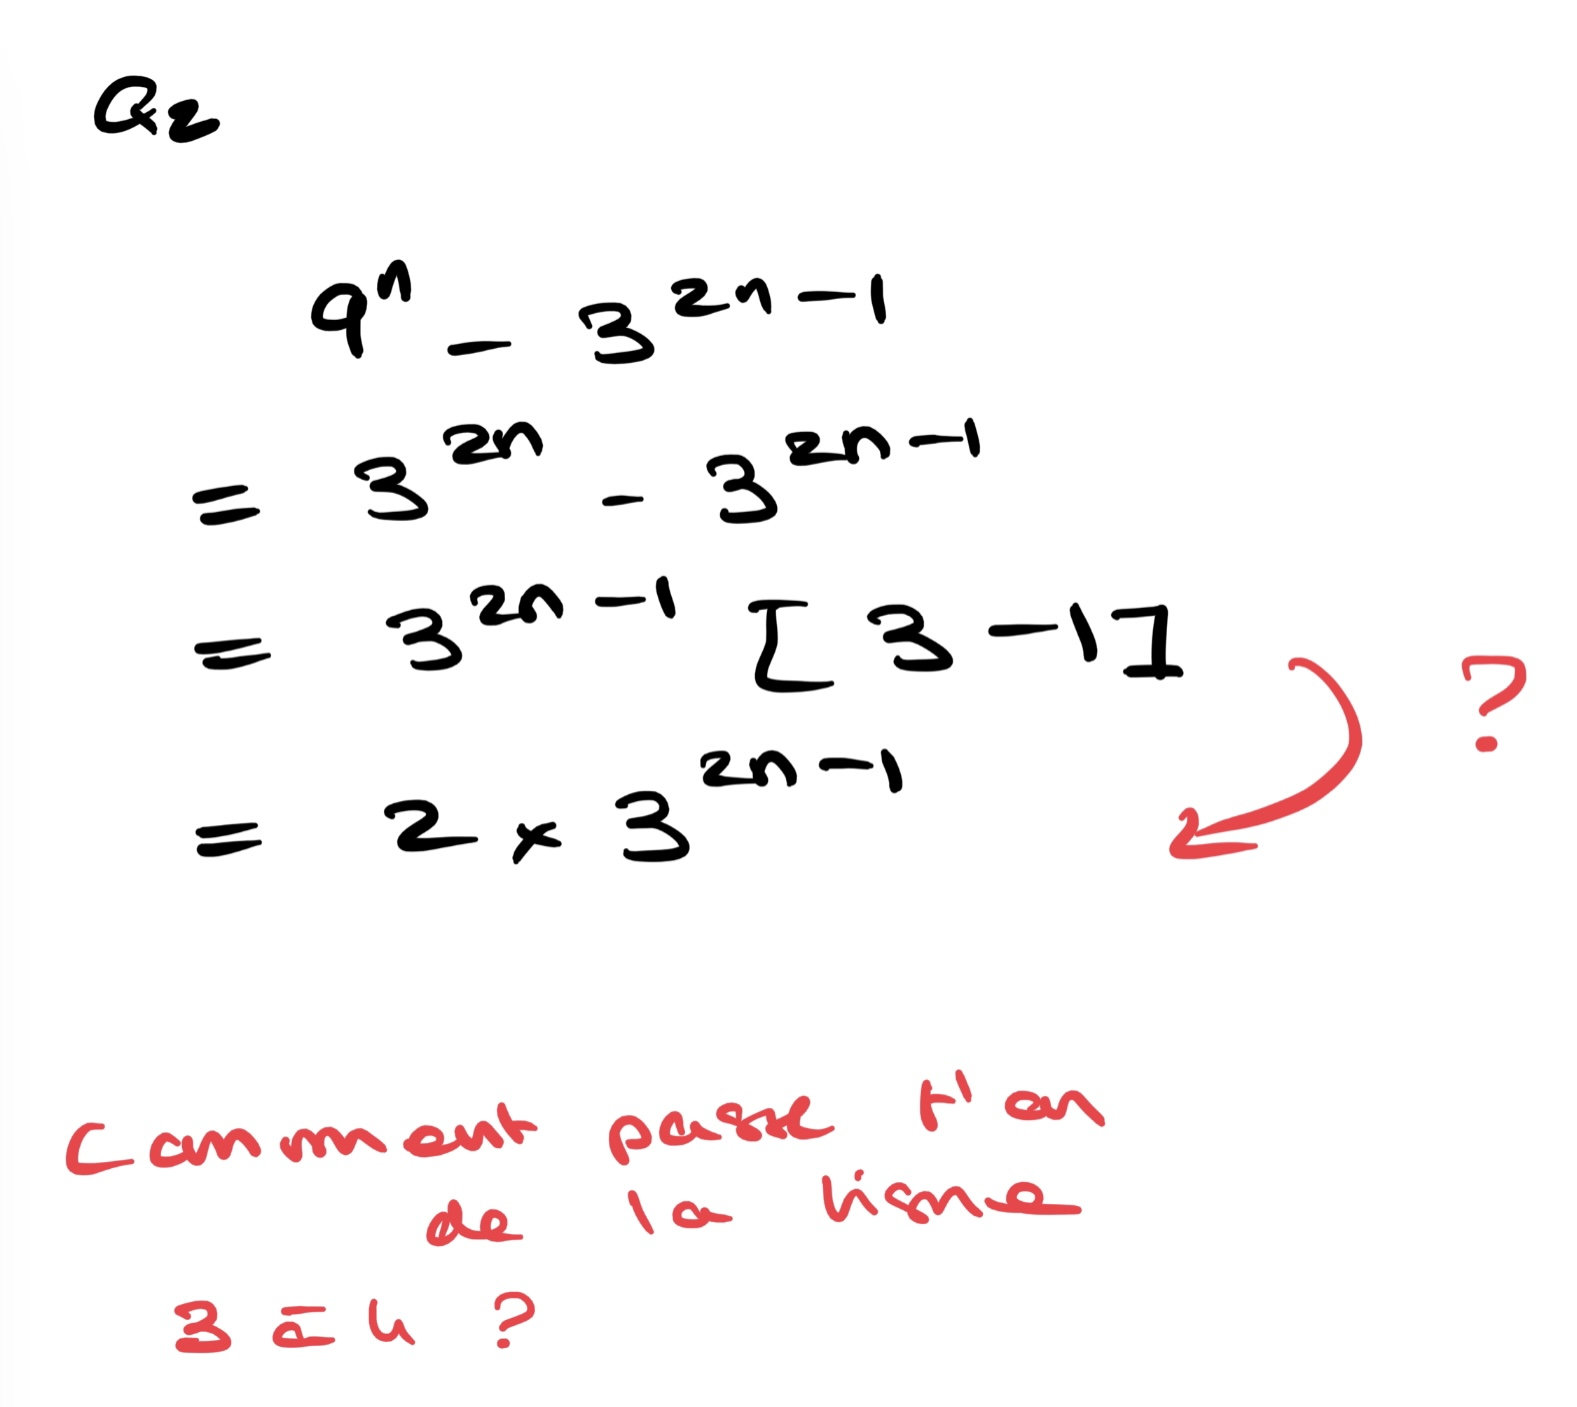 Q2
9ⁿ - 3²ⁿ⁻¹
= 3²ⁿ - 3²ⁿ⁻¹
= 3²ⁿ⁻¹ [3-1]
?
= 2 × 3²ⁿ⁻¹
Comment passe t'on
de la ligne
3 à 4 ?